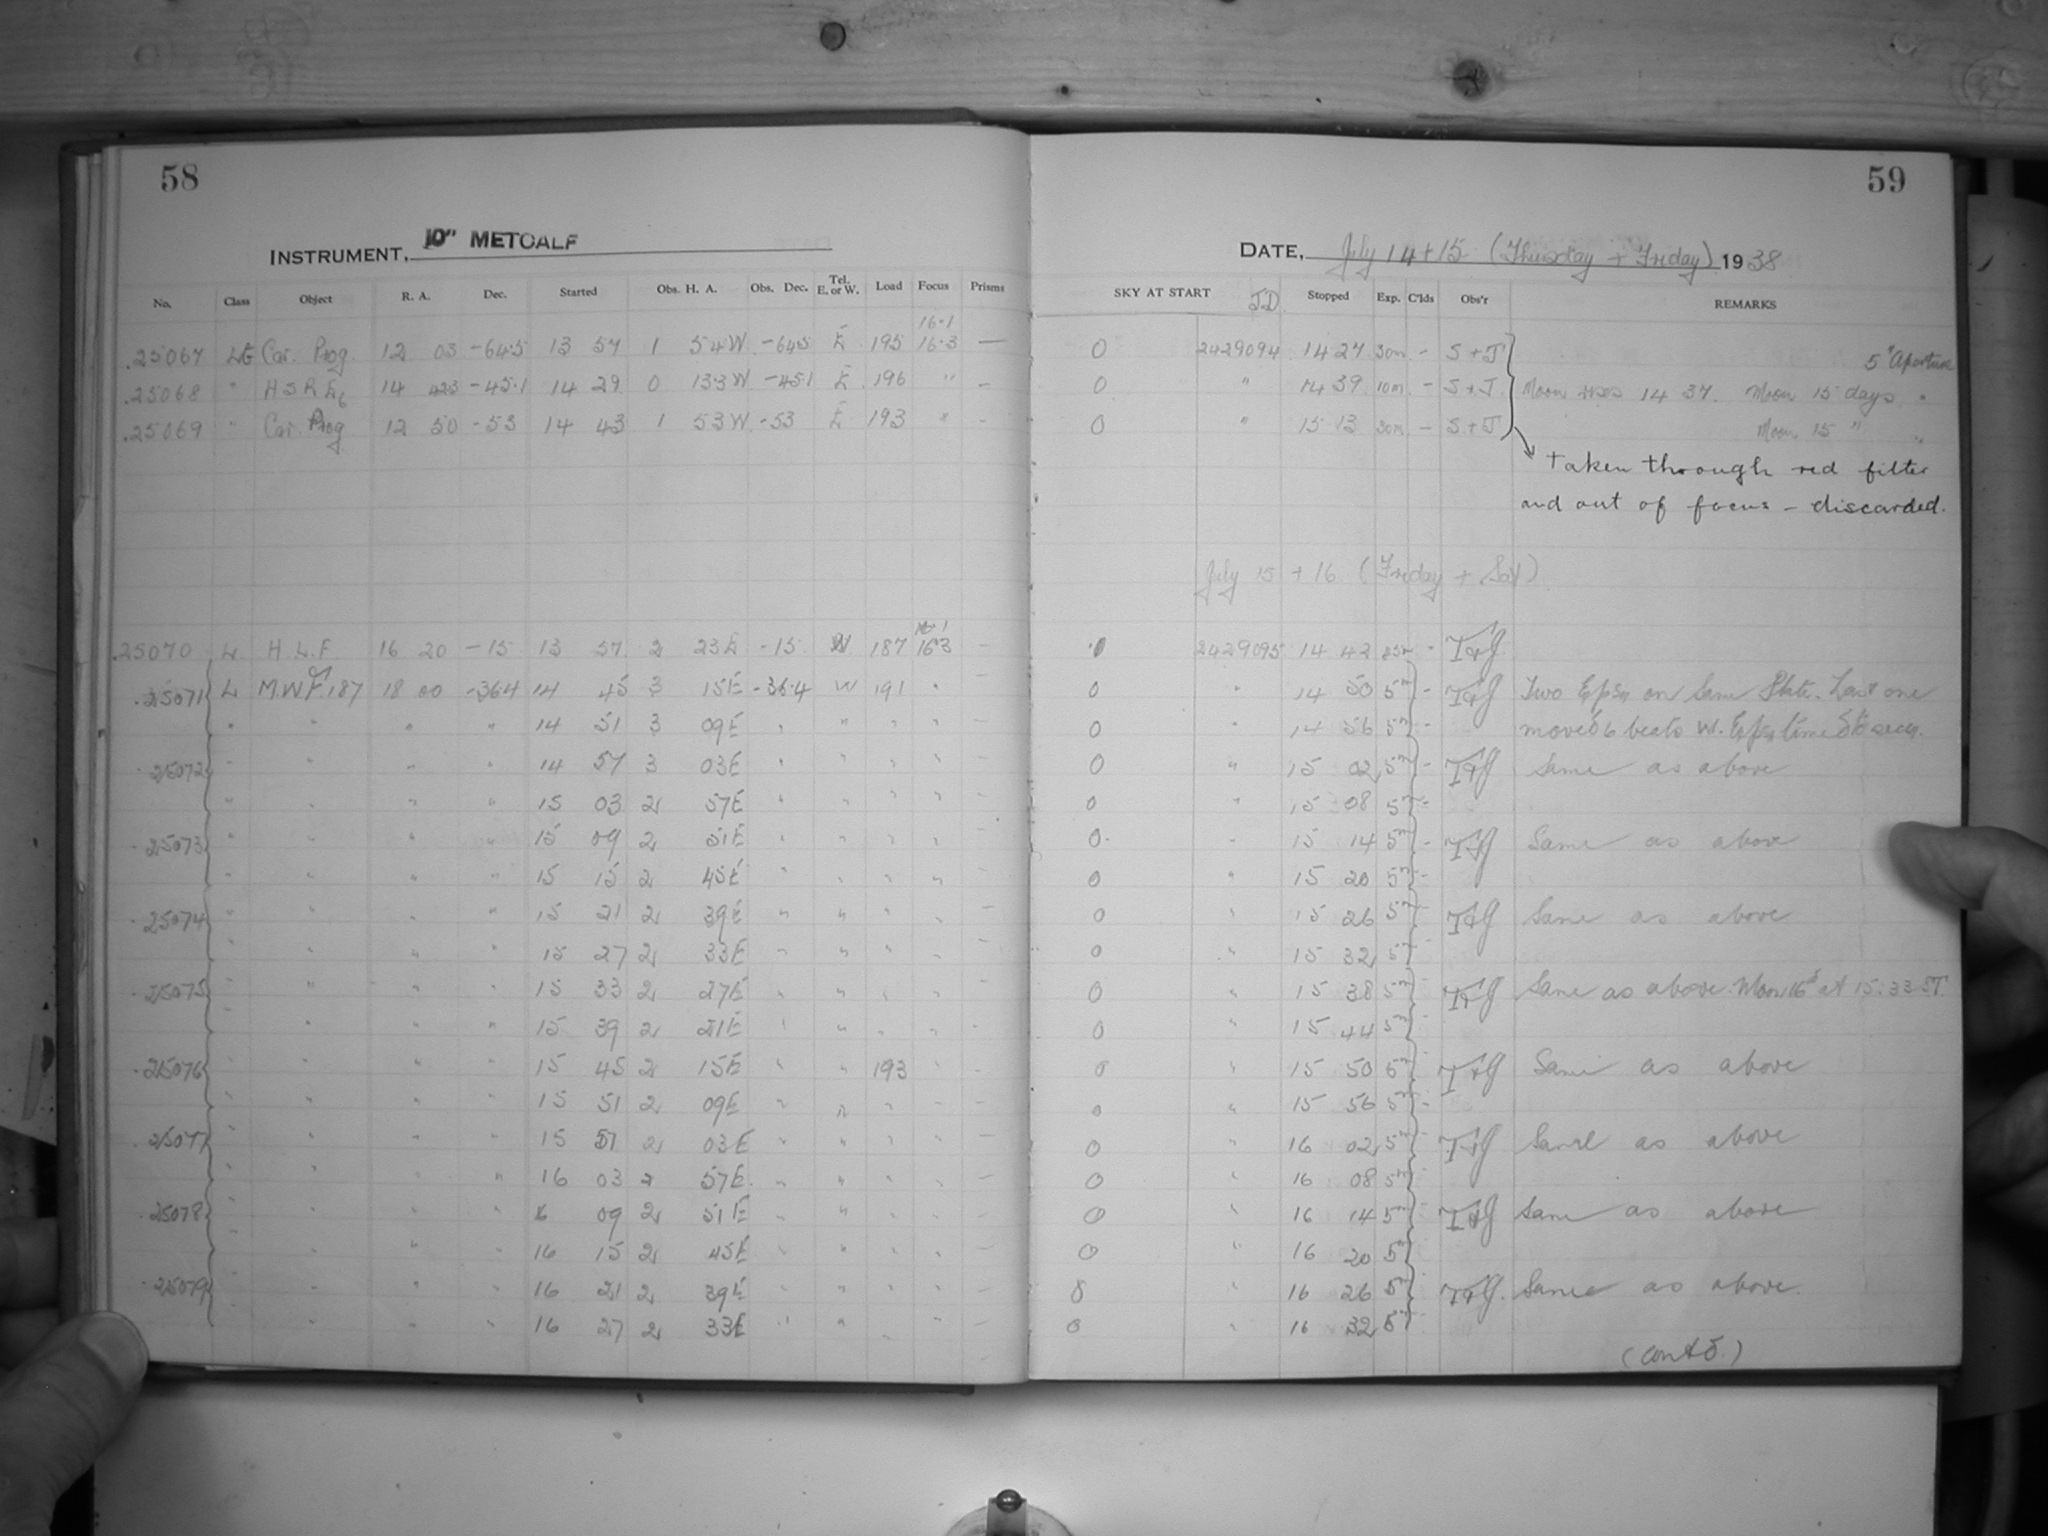 58
INSTRUMENT, 10" METCALF
No. Class Object R. A. Dec. Started Obs. H. A. Obs. Dec. Tel. E. or W. Load Focus Prisms
16.1
25067 Car. Prog. 12 03 -64.5 13 57 1 54W -64.5 E 195 16.3 —
25068 " H S R E6 14 -45.1 14 29 0 13.3W -45.1 E 196 " -
25069 " Car. Prog 12 50 -53 14 43 1 53W -53 E 193 " -
16.1
25070 L H. L. F. 16 20 -15 13 57 2 23E -15 W 187 16.3 -
25071 L M.W.F 187 18 00 -36.4 14 45 3 15E -36.4 W 191 "
" " " " 14 51 3 09E " " " " -
25072 " " " " 14 57 3 03E " " " " -
" " " " 15 03 2 57E " " " " -
25073 " " " " 15 09 2 51E " " " " -
" " " " 15 15 2 45E " " " " -
25074 " " " " 15 21 2 39E " " " " -
" " " 15 27 2 33E " " " " -
25075 " " " " 15 33 2 27E " " " " -
" " " 15 39 2 21E " " " " -
25076 " " " " 15 45 2 15E " " 193 " -
" " " " 15 51 2 09E " " " " -
25077 " " " " 15 57 2 03E " " " " -
" " " " 16 03 2 57E " " " " -
25078 " " " " 16 09 2 51E " " " " -
" " " " 16 15 2 45E " " " " -
25079 " " " " 16 21 2 39E " " " " -
" " " 16 27 2 33E " " " " -
59
DATE, July 14+15 (Thursday + Friday) 1938
SKY AT START J.D. Stopped Exp. C'lds Obs'r REMARKS
0 2429094 14 27 30m - S+J 5" Aperture
0 " 14 39 10m - S+J Moon rises 14 37. Moon 15 days "
0 " 15 13 30m - S+J Moon 15 " "
Taken through red filter
and out of focus - discarded.
July 15 + 16 (Friday + Sat)
2429095 14 42 - T+J
0 " 14 50 5m - T+J Two Exps on Same Plate. Last one
0 " 14 56 5m - moved 6 beats W. Exps time secs.
0 " 15 02 5m - T+J Same as above
0 " 15 08 5m -
0 " 15 14 5m - T+J Same as above
0 " 15 20 5m -
0 " 15 26 5m T+J Same as above
0 " 15 32 5m
0 " 15 38 5m T+J Same as above. Moon 16d at 15:33 ST.
0 " 15 44 5m
0 " 15 50 5m T+J Same as above
0 " 15 56 5m -
0 " 16 02 5m T+J Same as above
0 " 16 08 5m
0 " 16 14 5m T+J Same as above
0 " 16 20 5m
0 " 16 26 5m T+J Same as above.
0 " 16 32 5m
(contd.)